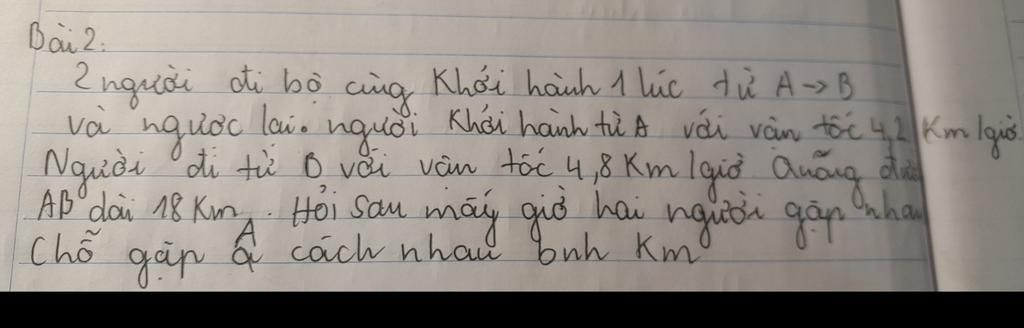 Bài 2:
2 người đi bộ cùng Khởi hành 1 lúc từ A → B
và ngược lại. người Khởi hành từ A với vân tốc 4,2 Km/giờ
Người đi từ B với vân tốc 4,8 Km/giờ Quãng đường
AB dài 18 Km. Hỏi sau mấy giờ hai người gặp nhau
Chỗ gặp A cách nhau bnh Km